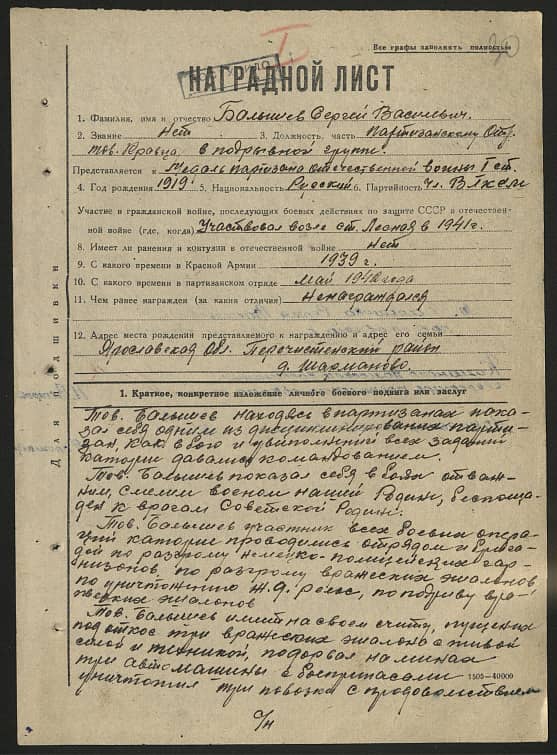 Все графы заполнять полностью
I
НАГРАДНОЙ ЛИСТ
1. Фамилия, имя и отчество Балышев Сергей Васильевич.
2. Звание Нет 3. Должность, часть Партизанскому Отр.
тов. Кравца в подрывной группе.
Представляется к Медаль партизана отечественной войны I ст.
4. Год рождения 1919г 5. Национальность Русский 6. Партийность чл. ВЛКСМ
Участие в гражданской войне, последующих боевых действиях по защите СССР и отечествен-
ной войне (где, когда) Участвовал возле ст. Лесная в 1941г.
8. Имеет ли ранения и контузии в отечественной войне Нет
9. С какого времени в Красной Армии 1939 г.
10. С какого времени в партизанском отряде май 1942 года
11. Чем ранее награжден (за какия отличия) Ненаграждался
12. Адрес места рождения представляемого к награждению и адрес его семьи
Ярославская Обл. Перочистенский район
д. Шарманово.
Для подшивки
1. Краткое, конкретное изложение личного боевого подвига или заслуг
Тов. Балышев находясь в партизанах пока-
зал себя одним из дисциплинированих парти-
зан, как в бою и увиполнений всех заданий
катории давались командованием.
Тов. Балышев показал себя в боях отваж-
ним, смелим военом нашей Родини, беспоща-
ден к врагам Советской Родини.
Тов. Балышев участник всех боевих опера-
ций катории проводились отрядом и брига-
дой по разгрому немецко-полицейских гар-
низонов по разгрому вражеских эшалонов
по уничтожению ж.д. рельс, по подриву вра-
жеских эшалонов
Тов. Балышев имеит на своем считу, пущених
под откос три вражеских эшалона с живой
силой и техникой, подорвал на минах
три автомашины с боеприпасами
1505-40000
уничтожил три повозки с продовольствием
с/н